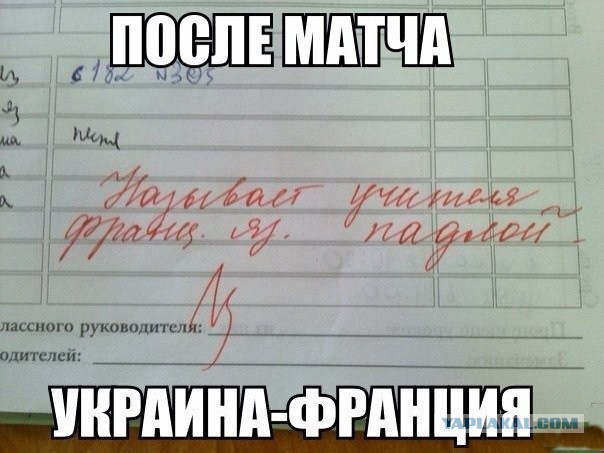 ПОСЛЕ МАТЧА
с 182 N305
яз
ма песня
а
а Называет учителя
франц. яз. падлой
лассного руководителя:
одителей:
УКРАИНА-ФРАНЦИЯ
YAPLAKAL.COM